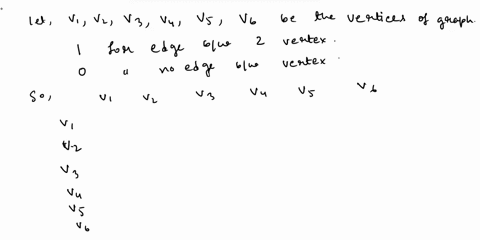 Let, V1, V2, V3, V4, V5, V6 be the vertices of graph.
1 for edge b/w 2 vertex.
0 " no edge b/w vertex.
So, V1 V2 V3 V4 V5 V6
V1
V2
V3
V4
V5
V6